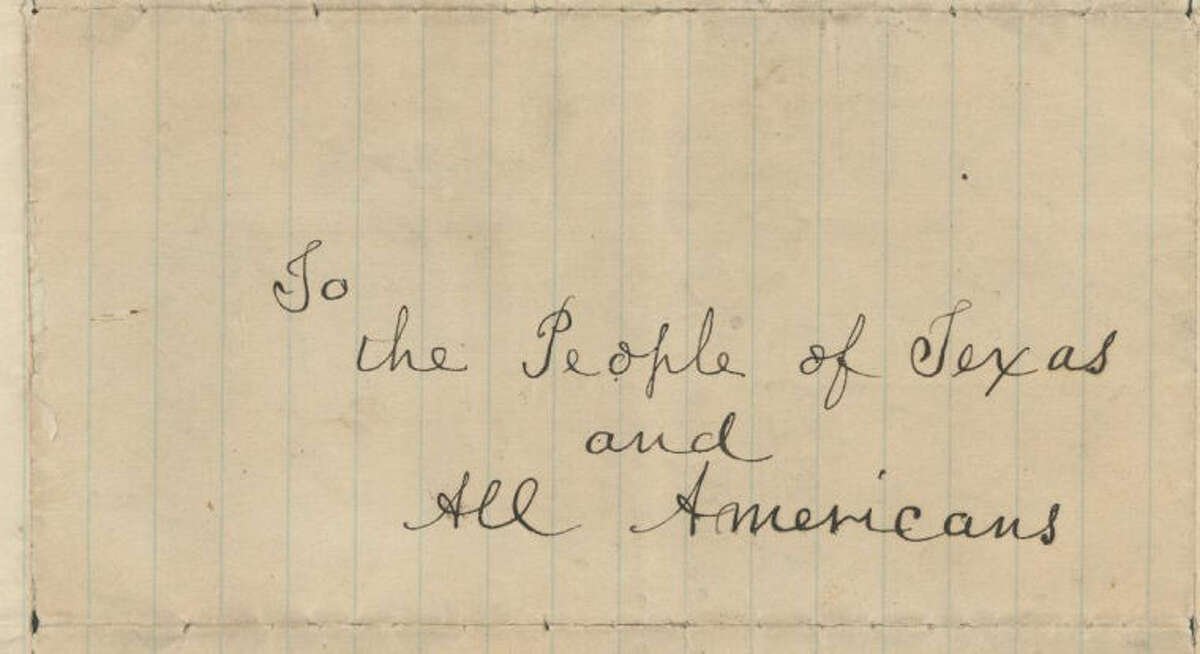 To
the People of Texas
and
All Americans